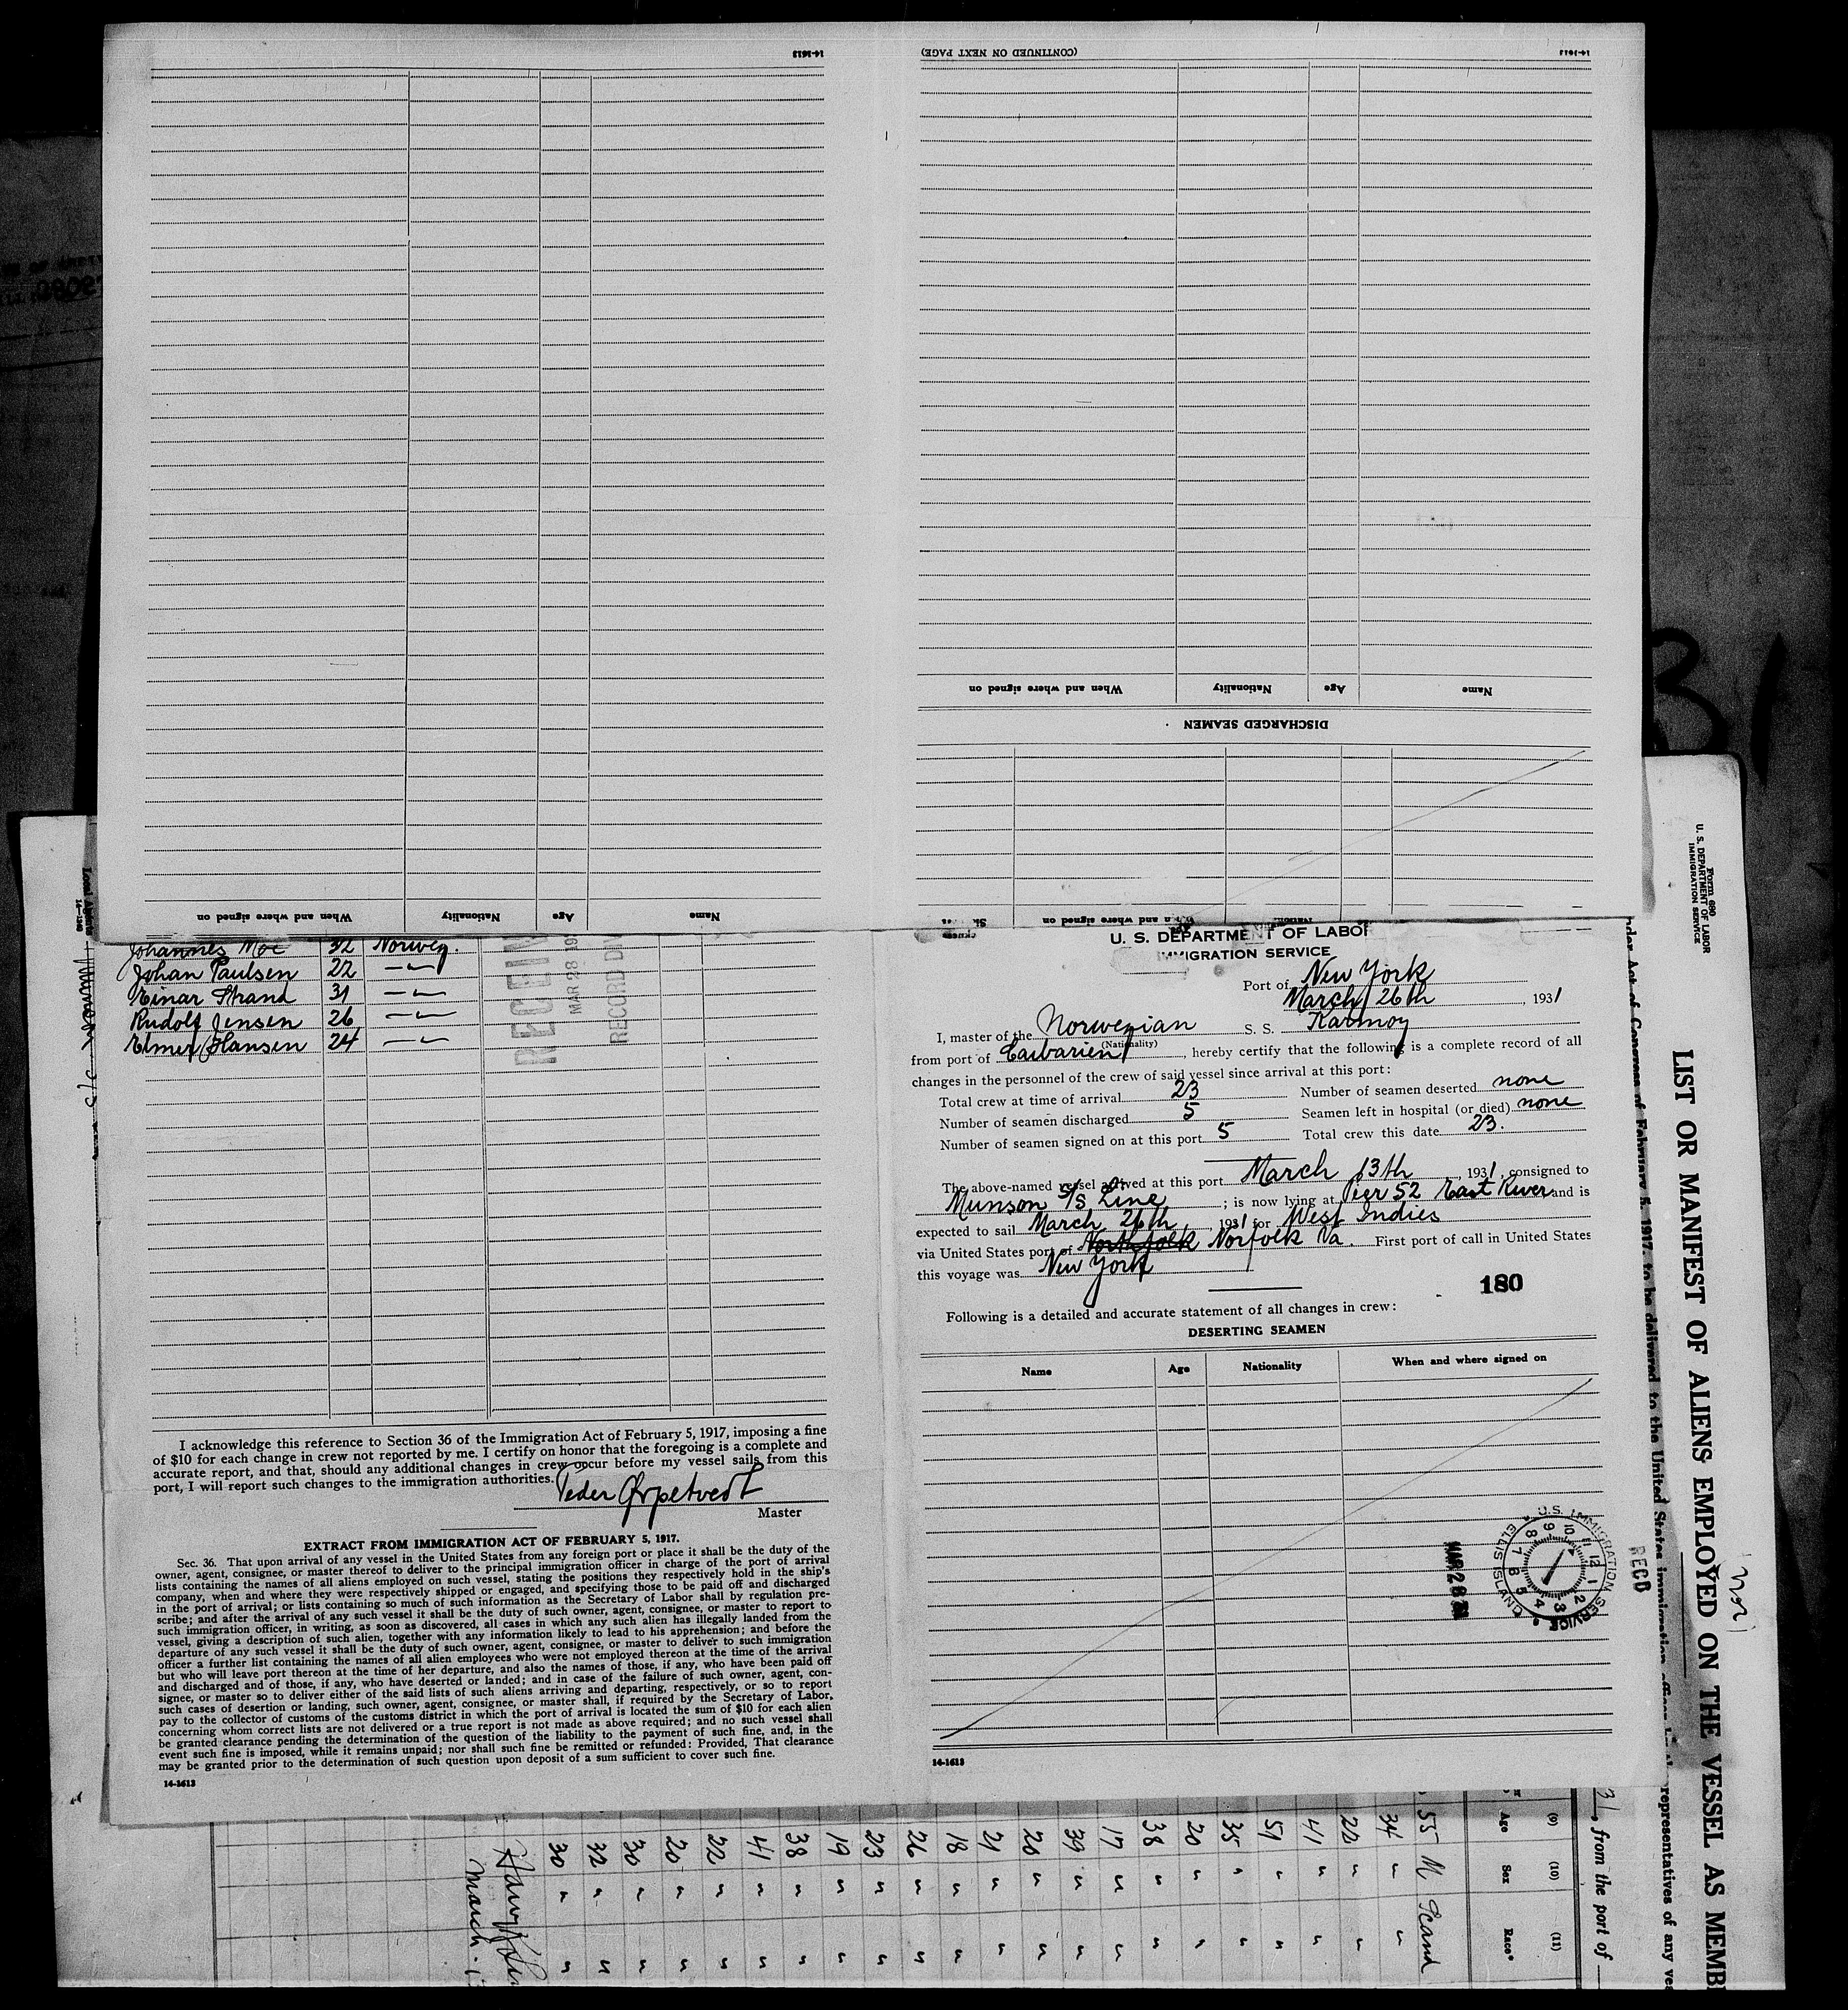 14-1613
(CONTINUED ON NEXT PAGE)
14-1613
Name
Age
Nationality
When and where signed on
DISCHARGED SEAMEN
Name
Age
Nationality
When and where signed on
Name
Age
When and where signed on
Johannes Moe 32 Norweg.
Johan Paulsen 22 —"—
Einar Strand 31 —"—
Rudolf Jensen 26 —"—
Elmer Hansen 24 —"—
MAR 28 193
RECORD DIV
I acknowledge this reference to Section 36 of the Immigration Act of February 5, 1917, imposing a fine
of $10 for each change in crew not reported by me. I certify on honor that the foregoing is a complete and
accurate report, and that, should any additional changes in crew occur before my vessel sails from this
port, I will report such changes to the immigration authorities.
Peder Ørpetvedt
Master
EXTRACT FROM IMMIGRATION ACT OF FEBRUARY 5, 1917.
Sec. 36. That upon arrival of any vessel in the United States from any foreign port or place it shall be the duty of the
owner, agent, consignee, or master thereof to deliver to the principal immigration officer in charge of the port of arrival
lists containing the names of all aliens employed on such vessel, stating the positions they respectively hold in the ship's
company, when and where they were respectively shipped or engaged, and specifying those to be paid off and discharged
in the port of arrival; or lists containing so much of such information as the Secretary of Labor shall by regulation pre-
scribe; and after the arrival of any such vessel it shall be the duty of such owner, agent, consignee, or master to report to
such immigration officer, in writing, as soon as discovered, all cases in which any such alien has illegally landed from the
vessel, giving a description of such alien, together with any information likely to lead to his apprehension; and before the
departure of any such vessel it shall be the duty of such owner, agent, consignee, or master to deliver to such immigration
officer a further list containing the names of all alien employees who were not employed thereon at the time of the arrival
but who will leave port thereon at the time of her departure, and also the names of those, if any, who have been paid off
and discharged and of those, if any, who have deserted or landed; and in case of the failure of such owner, agent, con-
signee, or master so to deliver either of the said lists of such aliens arriving and departing, respectively, or so to report
such cases of desertion or landing, such owner, agent, consignee, or master shall, if required by the Secretary of Labor,
pay to the collector of customs of the customs district in which the port of arrival is located the sum of $10 for each alien
concerning whom correct lists are not delivered or a true report is not made as above required; and no such vessel shall
be granted clearance pending the determination of the question of the liability to the payment of such fine, and, in the
event such fine is imposed, while it remains unpaid; nor shall such fine be remitted or refunded: Provided, That clearance
may be granted prior to the determination of such question upon deposit of a sum sufficient to cover such fine.
14-1613
U. S. DEPARTMENT OF LABOR
IMMIGRATION SERVICE
Port of New York
March 26th, 1931
I, master of the Norwegian S. S. Karmoy
(Nationality)
from port of Caibarien, hereby certify that the following is a complete record of all
changes in the personnel of the crew of said vessel since arrival at this port:
Total crew at time of arrival 23 Number of seamen deserted none
Number of seamen discharged 5 Seamen left in hospital (or died) none
Number of seamen signed on at this port 5 Total crew this date 23.
The above-named vessel arrived at this port March 13th, 1931, consigned to
Munson S/S Line; is now lying at Pier 52 East River and is
expected to sail March 26th, 1931 for West Indies
via United States port of Northfolk Norfolk Va. First port of call in United States
this voyage was New York
180
Following is a detailed and accurate statement of all changes in crew:
DESERTING SEAMEN
Name Age Nationality When and where signed on
U.S. IMMIGRATION SERVICE
ELLIS ISLAND
REC'D
14-1613
Form 680
U. S. DEPARTMENT OF LABOR
IMMIGRATION SERVICE
LIST OR MANIFEST OF ALIENS EMPLOYED ON THE VESSEL AS MEMB
31, from the port of
(9) (10) (11)
Age Sex Race*
55 M Scand
34 " "
22 " "
41 " "
51 " "
35 " "
20 " "
38 " "
17 " "
39 " "
20 " "
21 " "
18 " "
26 " "
23 " "
19 " "
38 " "
41 " "
22 " "
20 " "
30 " "
32 " "
30 " "
March